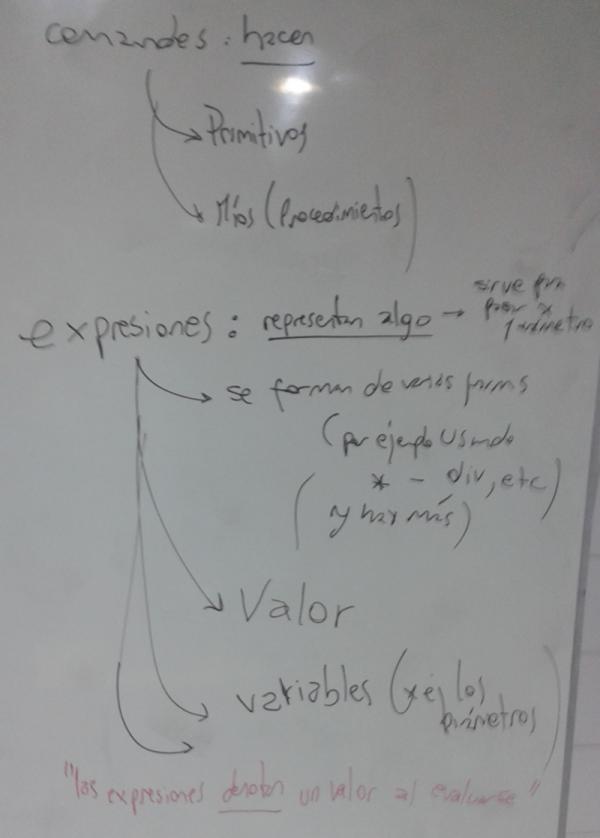 comandos: hacen
Primitivos
Míos (Procedimientos)
expresiones: representan algo → sirve pra
pasar x
parámetro
se forman de varias forms
(por ejemplo usando
* - div, etc)
(y hay más)
Valor
variables (x ej los
parámetros)
"las expresiones denotan un valor al evaluarse"